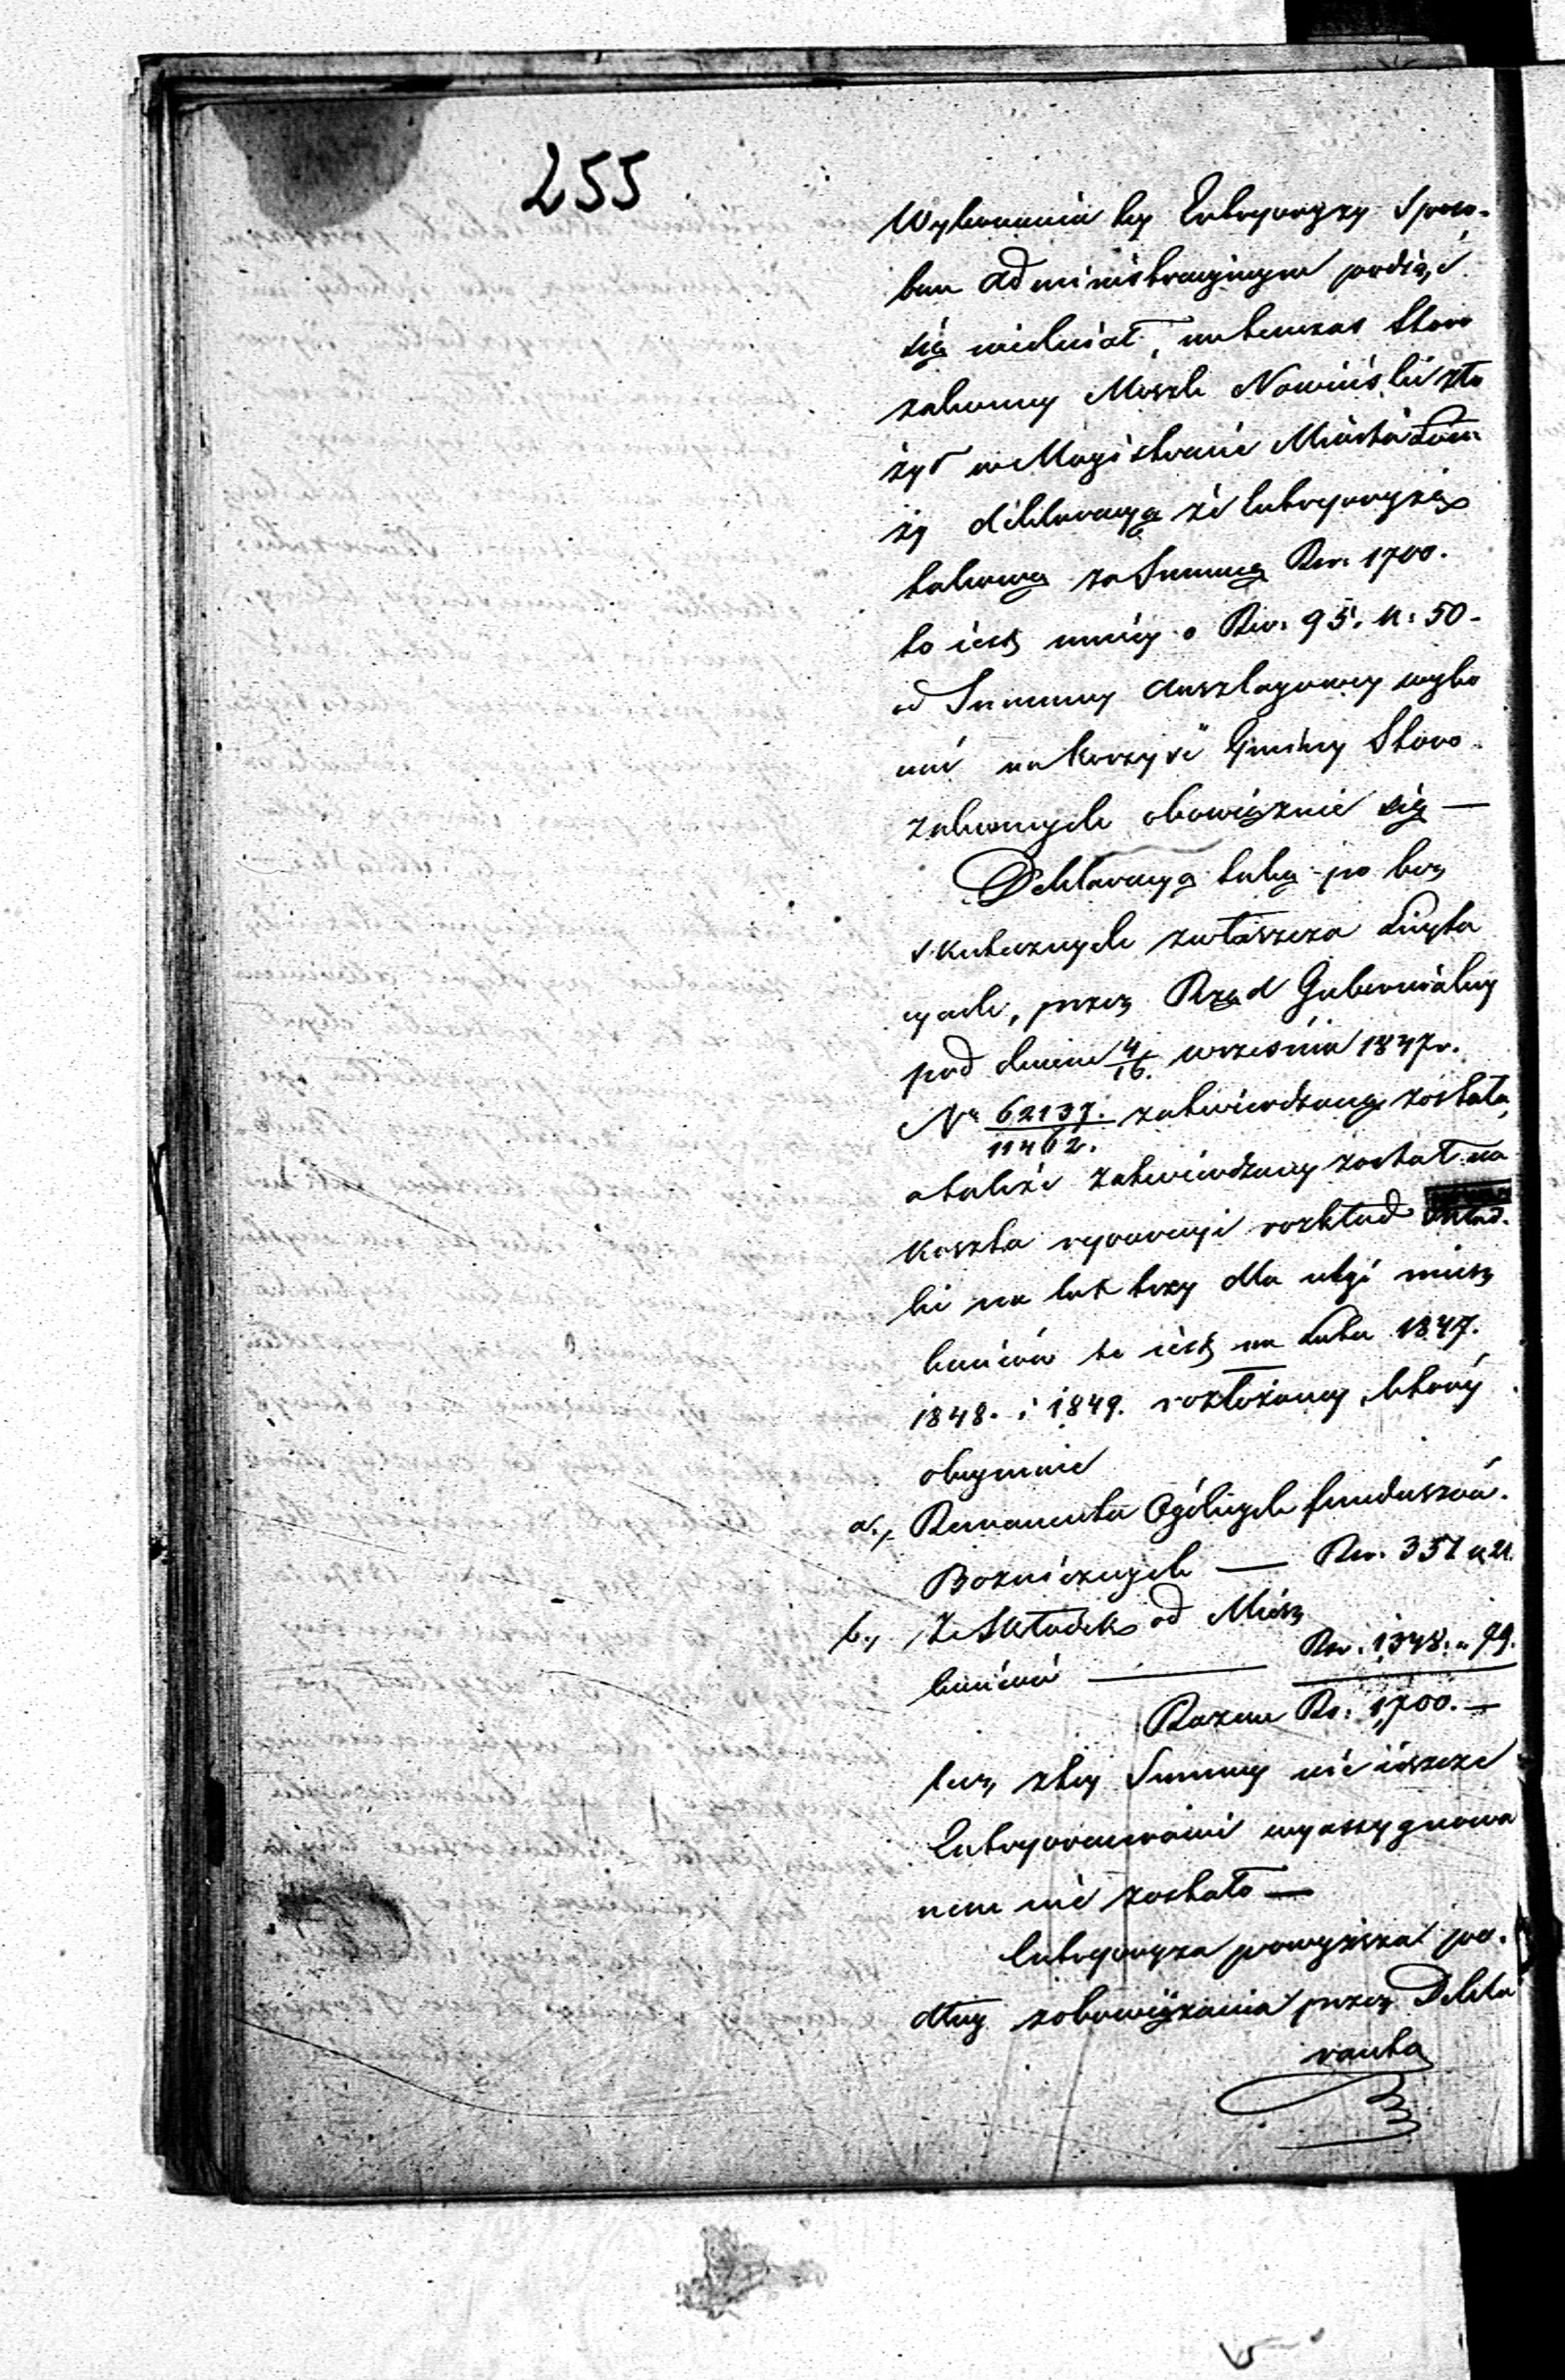 255
Wykonania tey Entrepryzy sposo-
bem administracyjnym podiąć
się niechciał, natenczas Staro
zakonny Moszk Nowiński zło
żył w Magistracie Miasta Łom
ży deklaracyą że Entrepryzę
takową za Summę Rsr. 1700.
to iest mniey o Rsr. 95. k: 50-
od Summy Anszlagowey wyko
nać na korzyść Gminy Staro-
zakonnych obowiąznie się —
Deklaracya taka po bez
skutecznych zwłaszcza Licyta
cyach, przez Rząd Gubernialny
pod dniem 4/16. września 1847r.
Nr 62137./11462. zatwierdzoną została,
a także zatwierdzony został na
koszta reparacyi rozkład Skład-
ki na lat trzy dla ulgi miesz
kańców to iest na Lata 1847.
1848. i 1849. rozłożony, który
obeymuie
a., Remanenta Ogólnych funduszów
Bożniczych — Rsr. 351 k 21.
b., Ze Składek od Miesz
kańców — Rsr. 1348. „ 79.
Razem Rs: 1,700. —
lecz z tey Summy nic ieszcze
Entreprenerowi wyassygnowa
nem nie zostało —
Entrepryza powyższa po-
dług zobowiązania przez Dekla
ranta